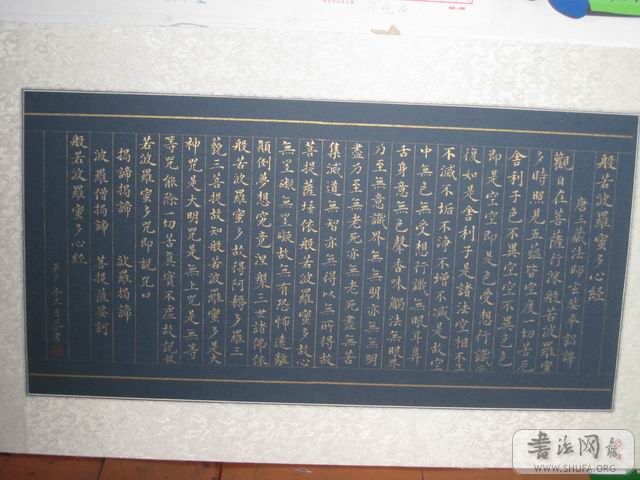 般若波羅蜜多心經
唐三藏法師玄奘奉詔譯
觀自在菩薩行深般若波羅蜜
多時照見五蘊皆空度一切苦厄
舍利子色不異空空不異色色
即是空空即是色受想行識亦
復如是舍利子是諸法空相不生
不滅不垢不淨不增不減是故空
中無色無受想行識無眼耳鼻
舌身意無色聲香味觸法無眼界
乃至無意識界無無明亦無無明
盡乃至無老死亦無老死盡無苦
集滅道無智亦無得以無所得故
菩提薩埵依般若波羅蜜多故心
無罣礙無罣礙故無有恐怖遠離
顛倒夢想究竟涅槃三世諸佛依
般若波羅蜜多故得阿耨多羅三
藐三菩提故知般若波羅蜜多是大
神咒是大明咒是無上咒是無等
等咒能除一切苦真實不虛故說般
若波羅蜜多咒即說咒曰
揭諦揭諦 波羅揭諦
波羅僧揭諦 菩提薩婆訶
般若波羅蜜多心經
書法网
WWW.SHUFA.ORG